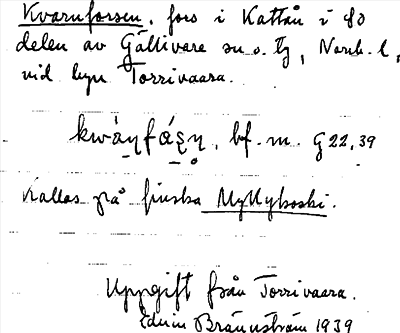 Kvarnforsen, fors i Kattån i sö
delen av Gällivare sn o. tg, Norrb. l,
vid byn Torrivaara.
kwàɳfáʂɳ, bf. m. G 22, 39
Kallas på finska Myllykoski.
Uppgift från Torrivaara.
Edvin Brännström 1939